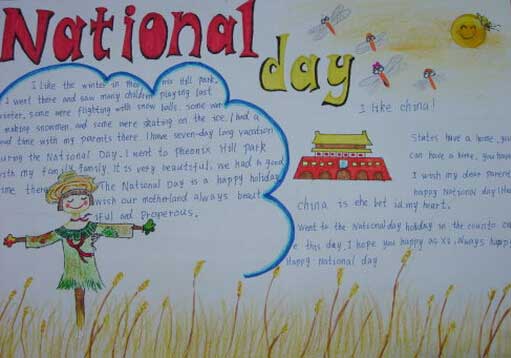 National
day
I like the winter in Phoenix Hill Park.
I went there and saw many children playing last
winter. some were flighting with snow balls. some were
making snowmen. and some were skating on the ice. I had a
good time with my parents there. I have seven-day long vacation
during the National Day. I went to Pheonix Hill park
with my family. family. It is very beautiful. we had a good
time there
The National Day is a happy holiday
wish our motherland always beaut
iful and Properous.
I like china!
States have a home, you
can have a home, you have
I wish my dear parent
happy National day!
china is ehe bet id my heart.
Went to the National day holiday in the counto
this day. I hope you happy as xs. always happy
Happy national day